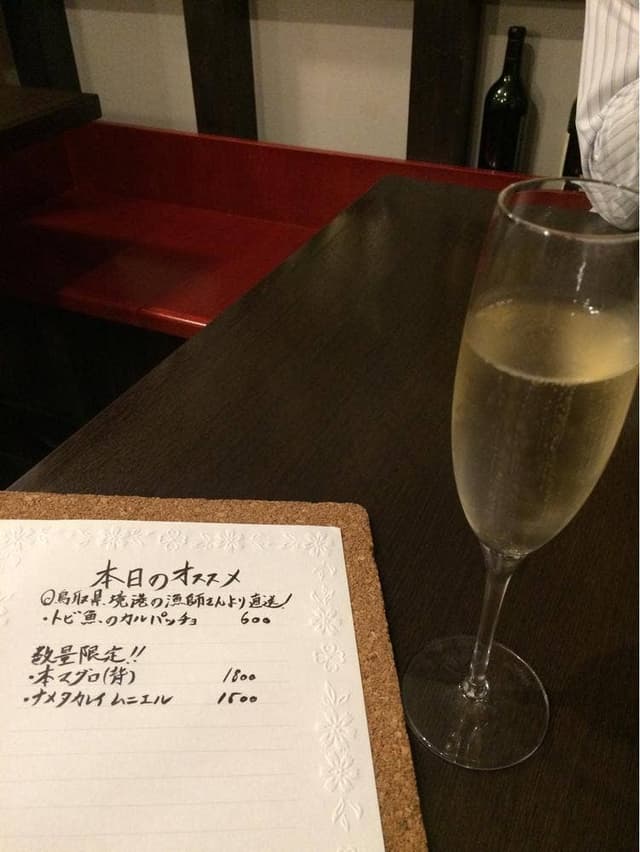 本日のオススメ
◎鳥取県境港の漁師さんより直送!
・トビ魚のカルパッチョ 600
数量限定!!
・本マグロ(背) 1800
・ナメタカレイムニエル 1500